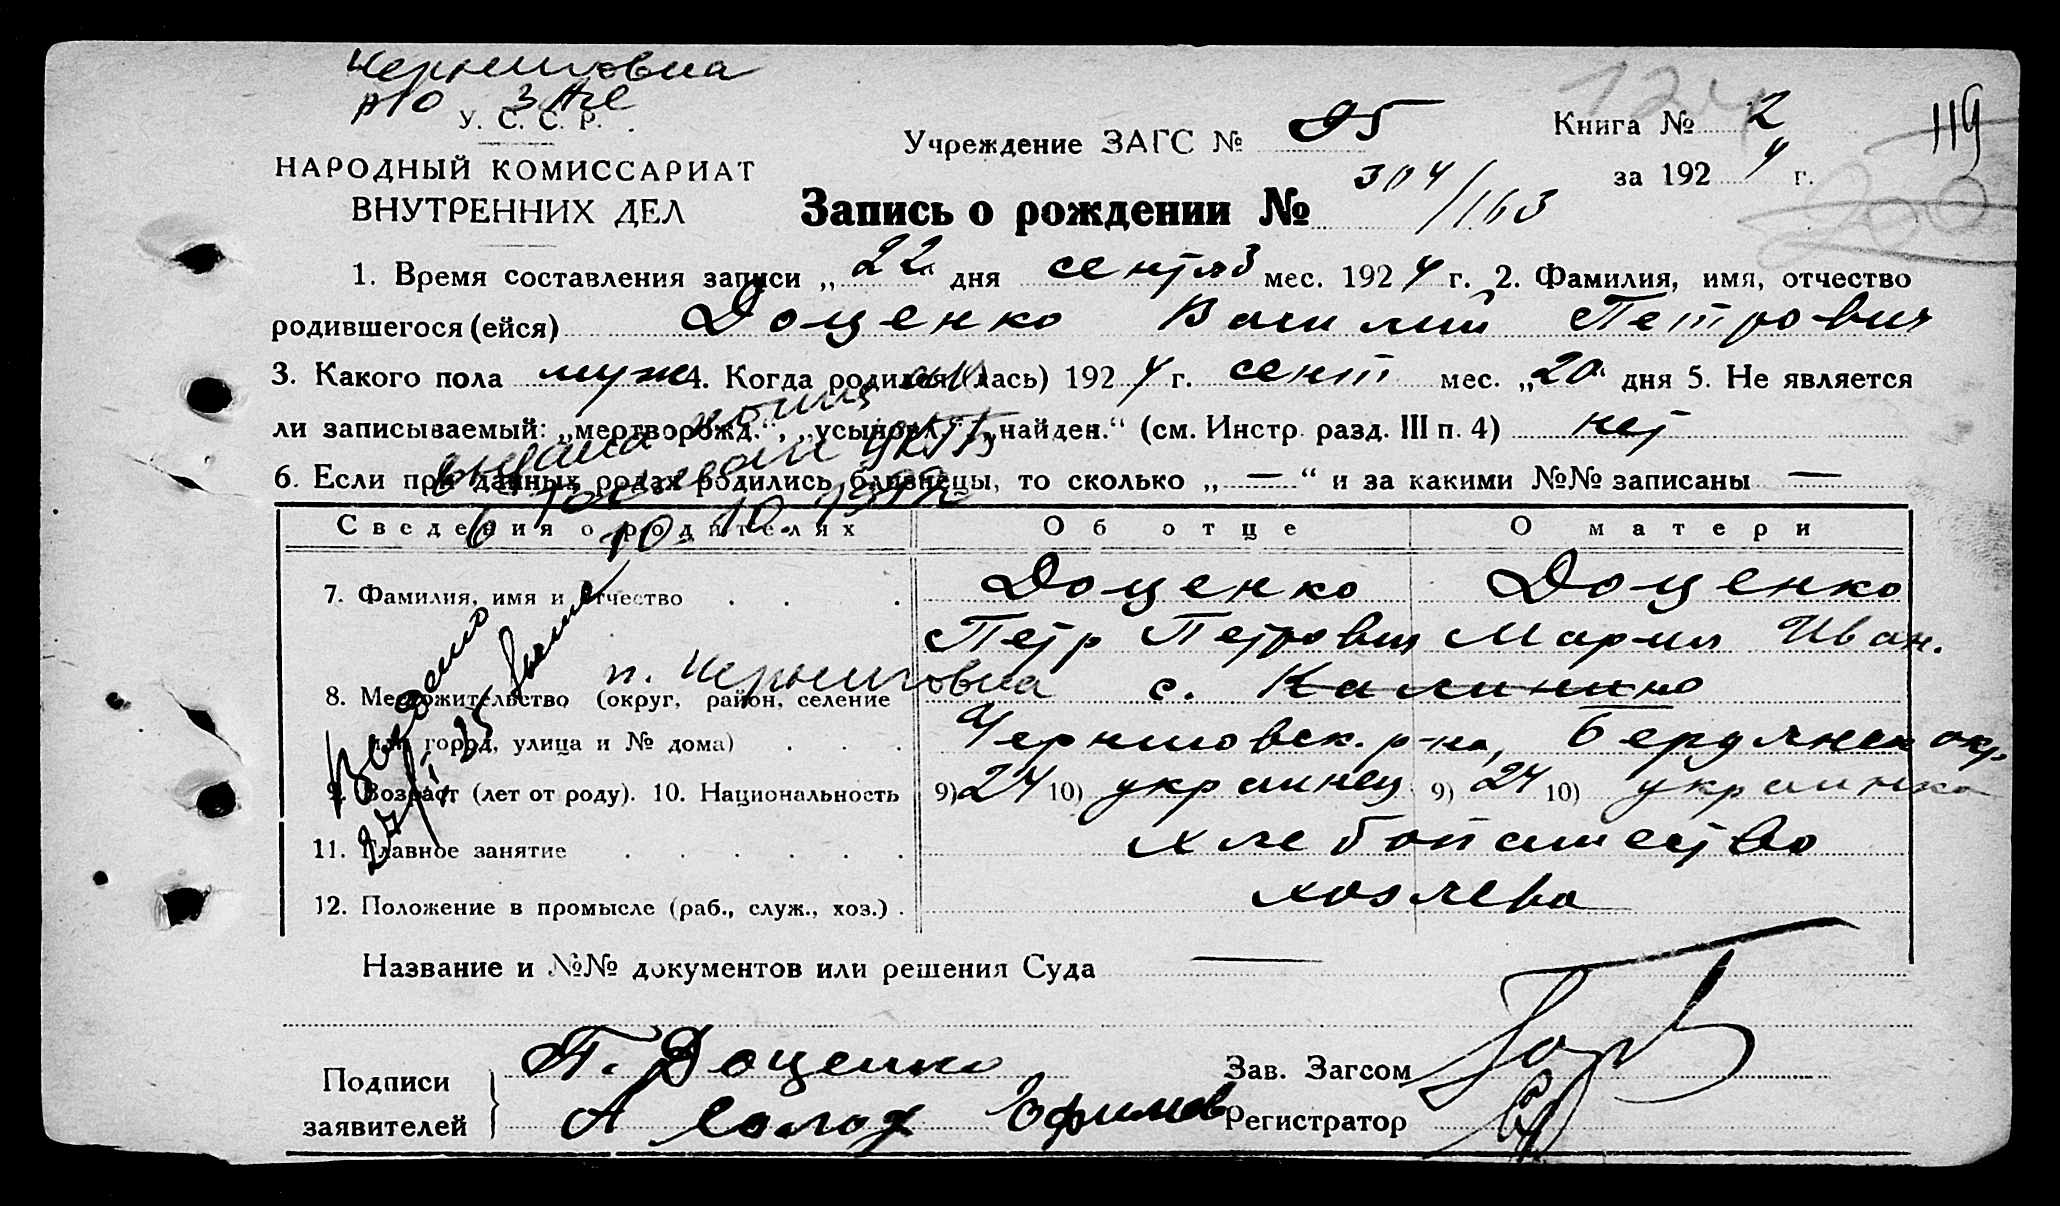 Черниговка
У. С. С. Р.
НАРОДНЫЙ КОМИССАРИАТ
ВНУТРЕННИХ ДЕЛ
Учреждение ЗАГС № 95
Книга № 2
119
за 1924 г.
200
Запись о рождении № 304/163
1. Время составления записи „22“ дня сентяб мес. 1924 г. 2. Фамилия, имя, отчество
родившегося (ейся) Доценко Василий Петрович
3. Какого пола муж 4. Когда родился (лась) 1924 г. сент мес. „20“ дня 5. Не является
ли записываемый: „мертворожд.“, „усыновл.“, „найден.“ (см. Инстр. разд. III п. 4) нет
6. Если при данных родах родились близнецы, то сколько „—“ и за какими №№ записаны —
Сведения о родителях Об отце О матери
7. Фамилия, имя и отчество Доценко Доценко
Петр Петрович Мария Иван.
п. Черниговка с. Калинино
8. Местожительство (округ, район, селение
или город, улица и № дома) Черниговск. р-на, Бердянск окр.
9. Возраст (лет от роду). 10. Национальность 9) 24 10) украинец 9) 24 10) украинка
11. Главное занятие хлебопашество
12. Положение в промысле (раб., служ., хоз.) хозяева
Название и №№ документов или решения Суда —
Подписи заявителей
П. Доценко
Зав. Загсом
Регистратор